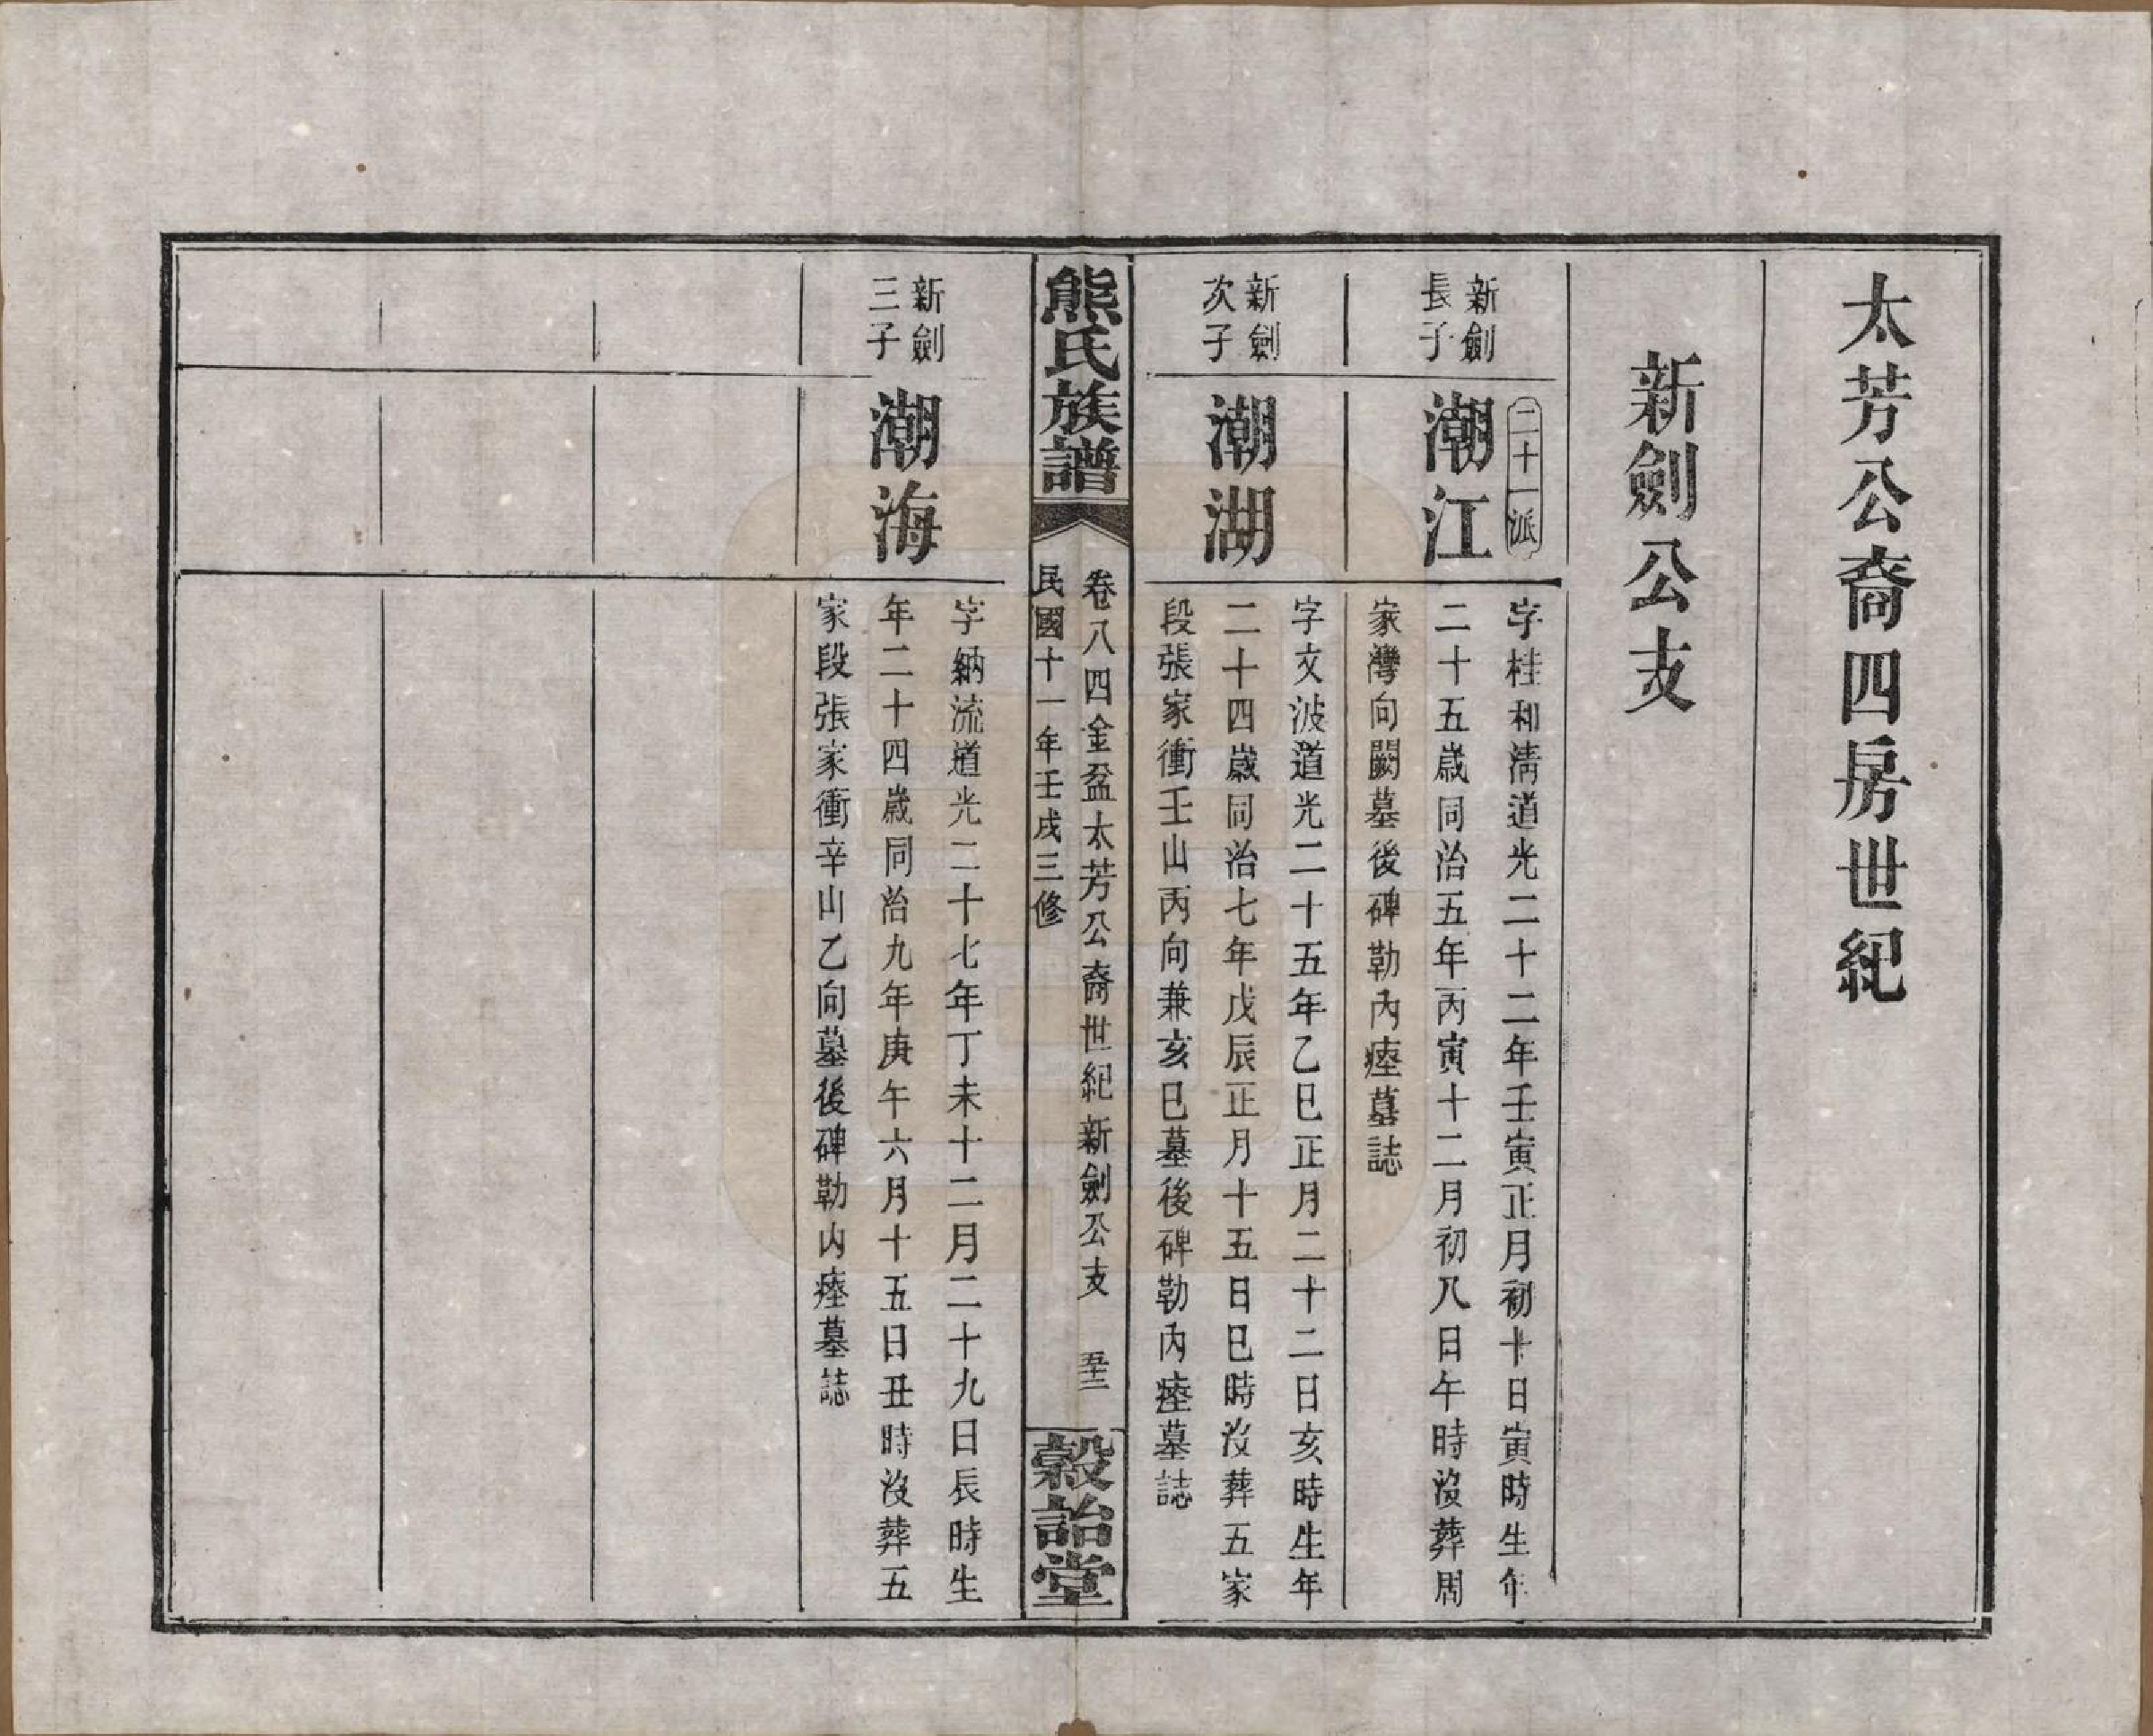 太芳公裔四房世紀
新劍公支
新劍
長子
二十一派
潮江
字桂和清道光二十二年壬寅正月初十日寅時生年
二十五歲同治五年丙寅十二月初八日午時沒葬周
家灣向闕墓後碑勒內瘞墓誌
新劍
次子
潮湖
字文波道光二十五年乙巳正月二十二日亥時生年
二十四歲同治七年戊辰正月十五日巳時沒葬五家
段張家衝壬山丙向兼亥巳墓後碑勒內瘞墓誌
熊氏族譜
卷八四金盆太芳公裔世紀新劍公支
民國十一年壬戌三修
穀詒堂
新劍
三子
潮海
字納流道光二十七年丁未十二月二十九日辰時生
年二十四歲同治九年庚午六月十五日丑時沒葬五
家段張家衝辛山乙向墓後碑勒內瘞墓誌